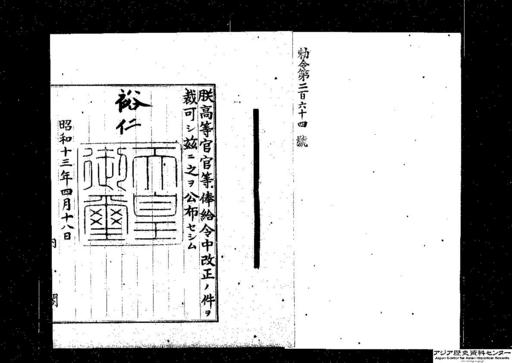 勅令第二百六十四號
朕高等官官等俸給令中改正ノ件ヲ
裁可シ茲ニ之ヲ公布セシム
裕仁
天皇
御璽
昭和十三年四月十八日
内閣
アジア歴史資料センター
Japan Center for Asian Historical Records